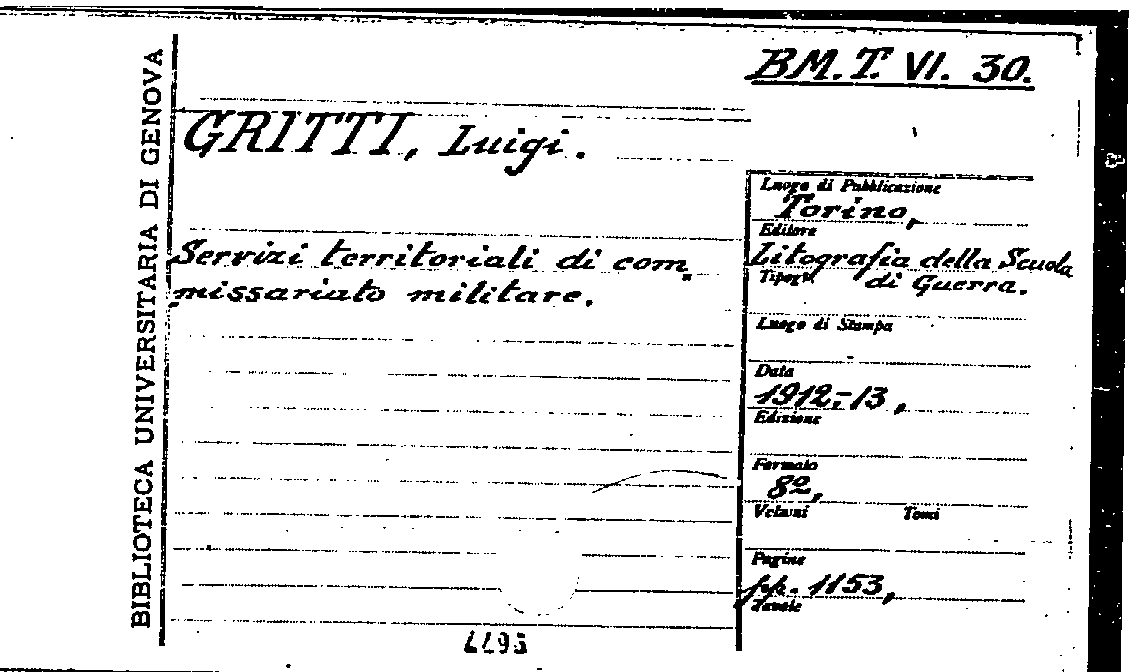 BIBLIOTECA UNIVERSITARIA DI GENOVA
BM. T. VI. 30.
GRITTI, Luigi.
Servizi territoriali di com„
„missariato militare.
Luogo di Pubblicazione
Torino,
Editore
Litografia della Scuola
Tipogr. di Guerra.
Luogo di Stampa
Data
1912-13,
Edizione
Formato
8º,
Volumi Tomi
Pagine
pp. 1153,
Tavole